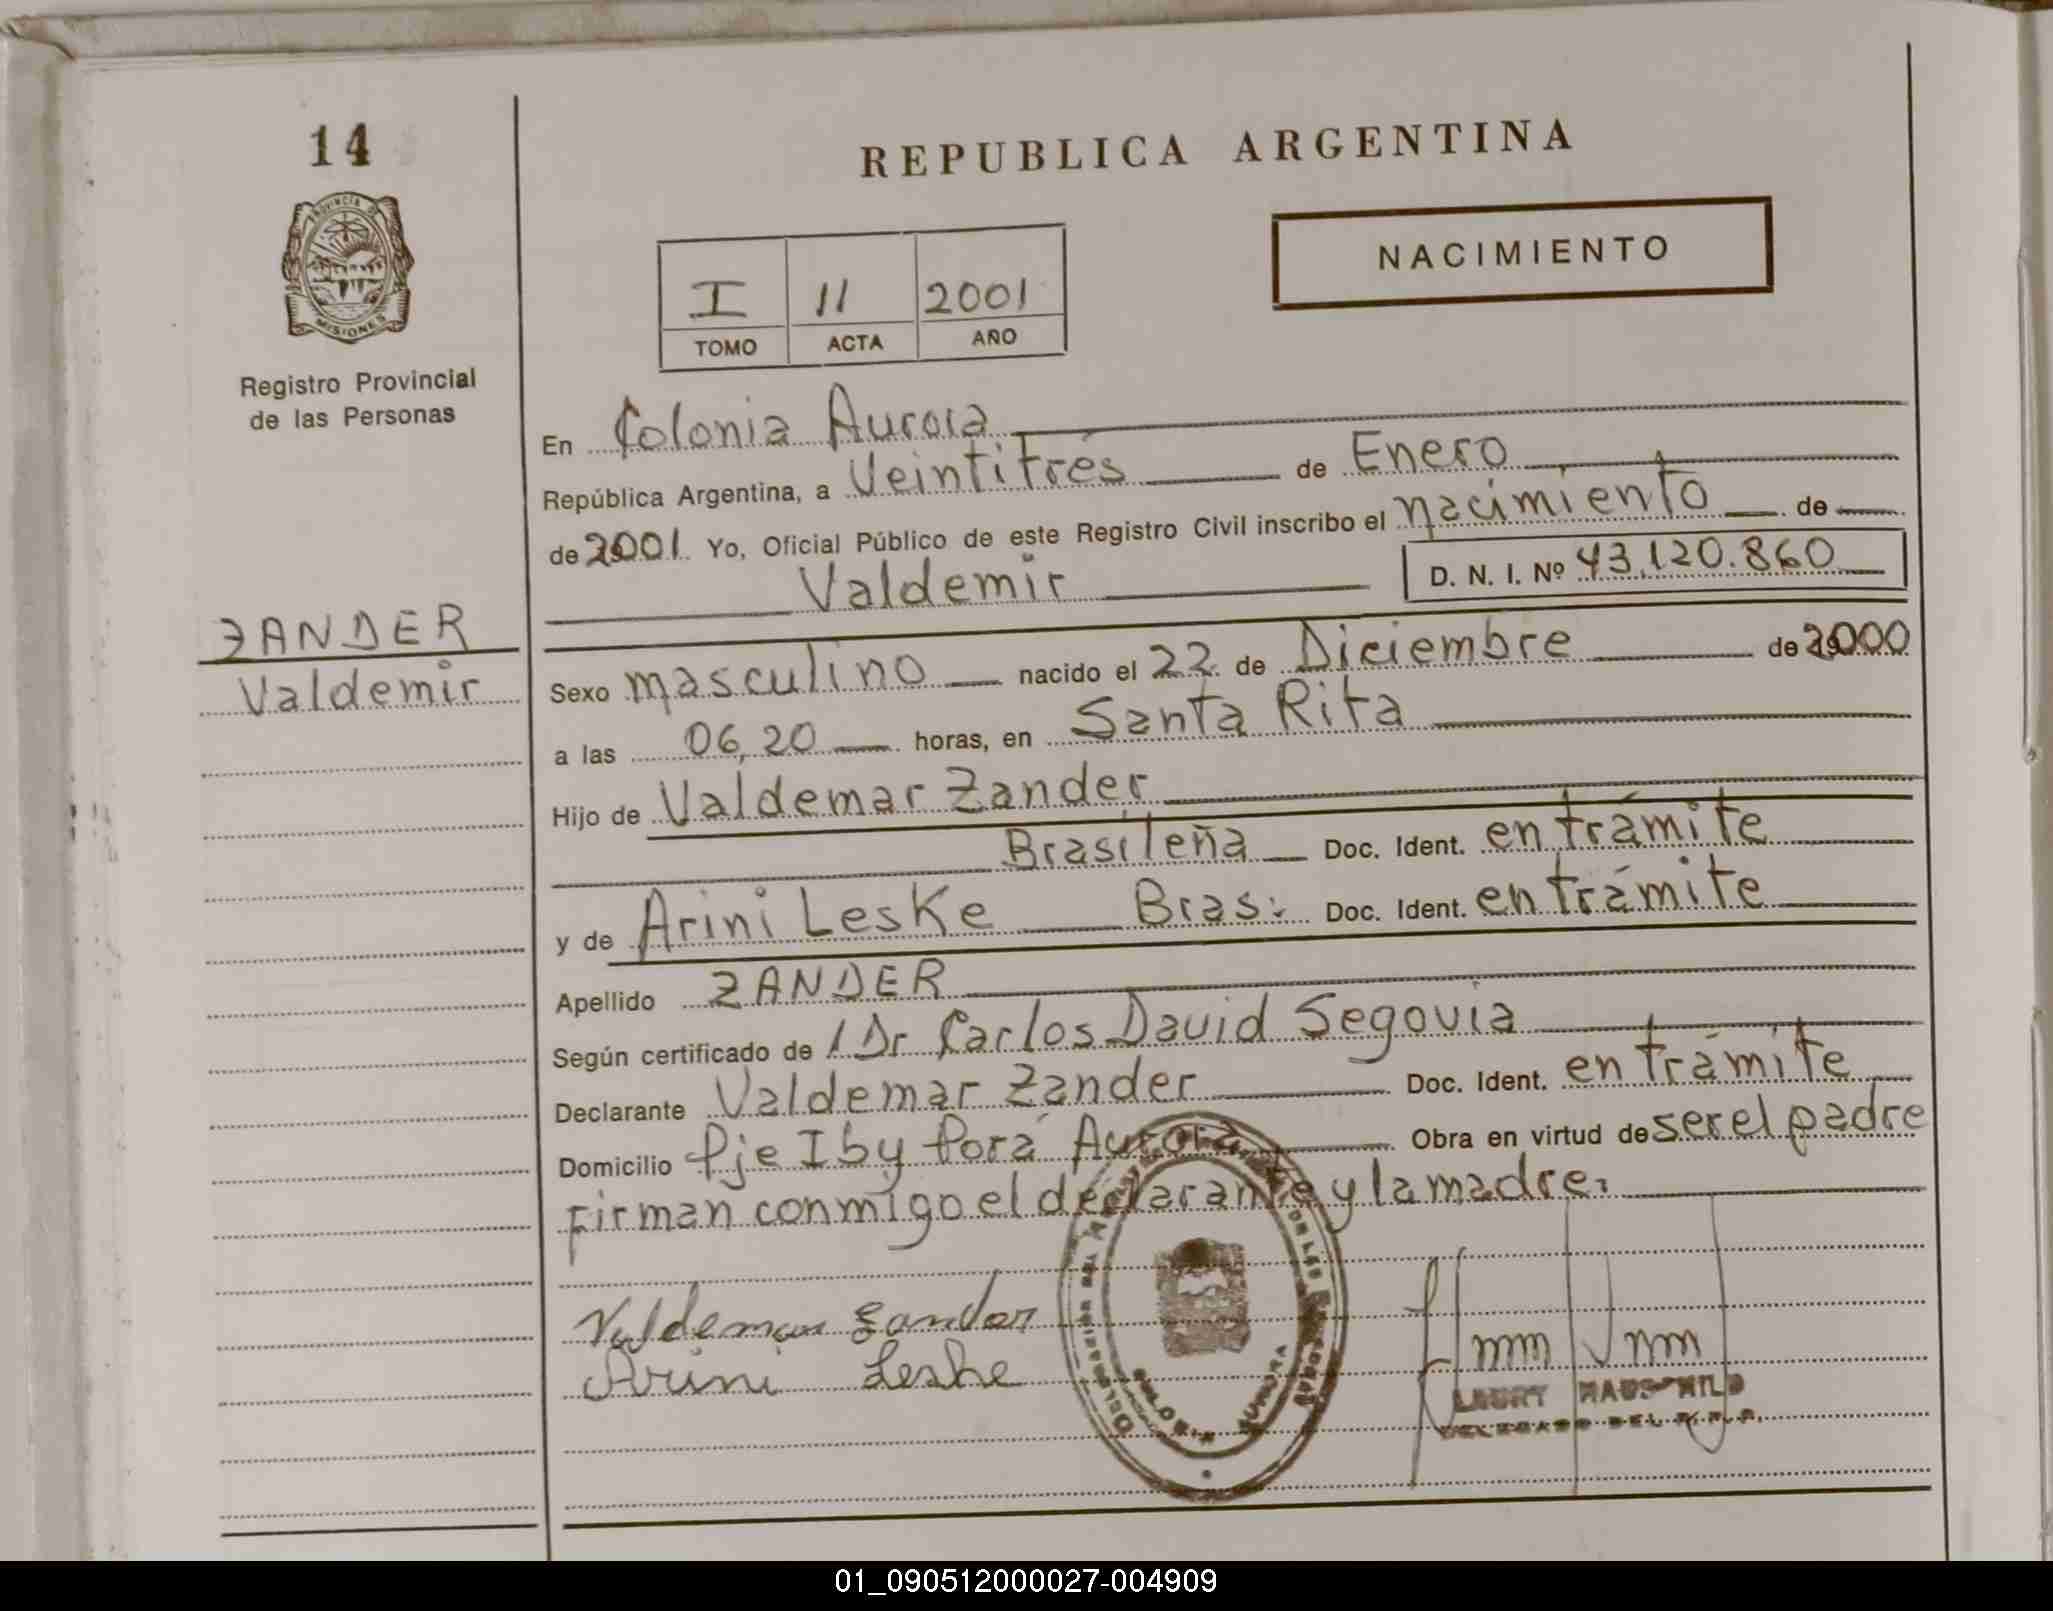 14
REPUBLICA ARGENTINA
PROVINCIA DE
MISIONES
NACIMIENTO
I 11 2001
TOMO ACTA AÑO
Registro Provincial
de las Personas
En Colonia Aurora
República Argentina, a Veintitrés de Enero
de 2001 Yo, Oficial Público de este Registro Civil inscribo el nacimiento de
Valdemir D. N. I. Nº 43.120.860
ZANDER
Valdemir
Sexo masculino nacido el 22 de Diciembre de 2000
a las 06,20 horas, en Santa Rita
Hijo de Valdemar Zander
Brasileña Doc. Ident. en trámite
y de Arini Leske Bras. Doc. Ident. en trámite
Apellido ZANDER
Según certificado de Dr Carlos David Segovia
Declarante Valdemar Zander Doc. Ident. en trámite
Domicilio Pje Iby Porá Aurora Obra en virtud de ser el padre
Firman conmigo el declarante y la madre.
Valdemar Zander
Arini Leske
AURORA
DELEGADO DEL R.P.P.
01_090512000027-004909